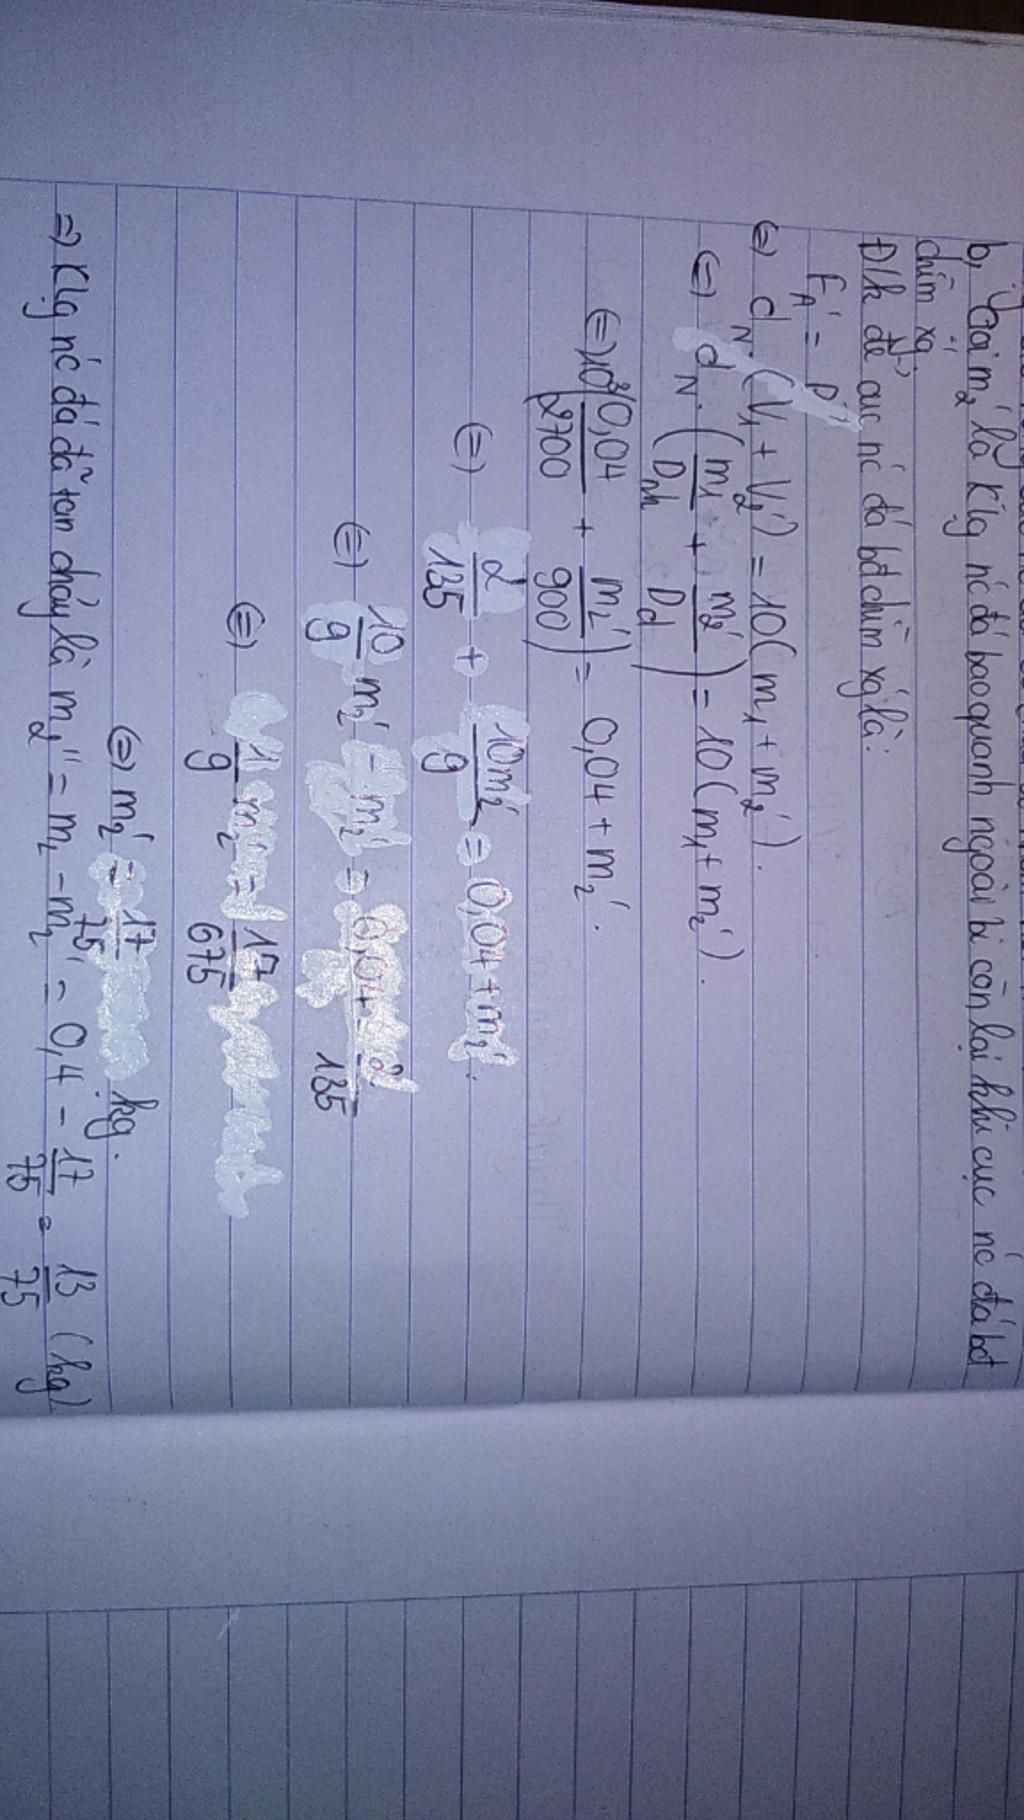 b, Gọi m₂' là klg nc đá bao quanh ngoài bi còn lại khi cục nc đá bđ
chìm xg
Đ/k để cục nc đá bđ chìm xg là:
F_A' = P'
(=) d_N.(V₁ + V₂') = 10(m₁ + m₂').
(=) d_N.(m₁/D_nh + m₂'/D_d) = 10(m₁ + m₂').
(=) 10³(0,04/2700 + m₂'/900) = 0,04 + m₂'.
(=) 2/135 + 10m₂'/9 = 0,04 + m₂'.
(=) 10/9 m₂' - m₂' = 0,04 - 2/135
(=) 1/9 m₂' = 17/675
(=) m₂' = 17/75 kg.
=) Klg nc đá đã tan chảy là m₂'' = m₂ - m₂' = 0,4 - 17/75 = 13/75 (kg)